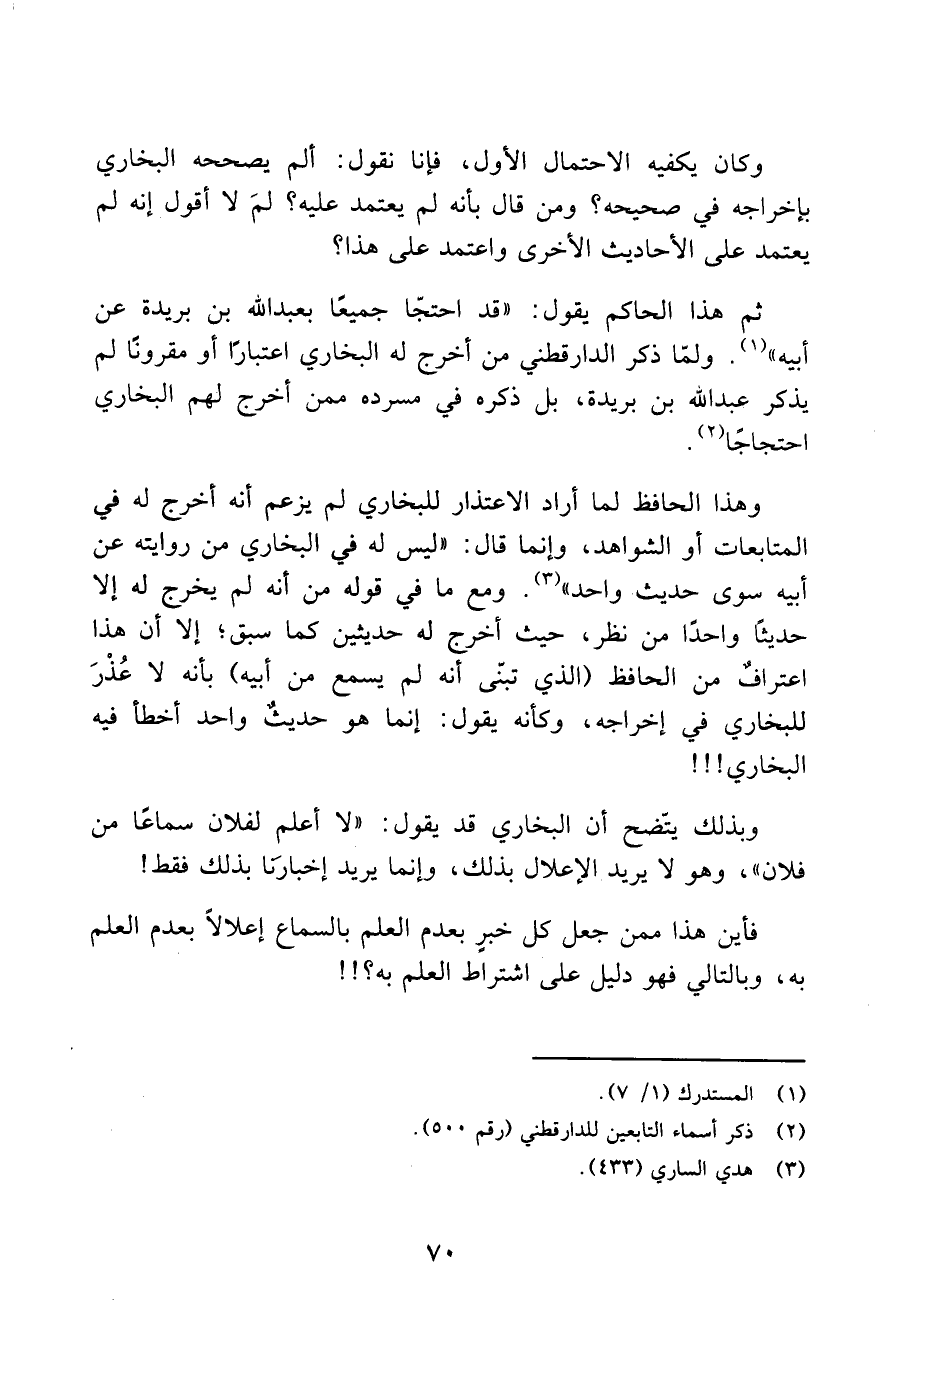 وكان يكفيه الاحتمال الأول، فإنا نقول: ألم يصححه البخاري
بإخراجه في صحيحه؟ ومن قال بأنه لم يعتمد عليه؟ لمَ لا أقول إنه لم
يعتمد على الأحاديث الأخرى واعتمد على هذا؟
ثم هذا الحاكم يقول: «قد احتجّا جميعًا بعبدالله بن بريدة عن
أبيه»(١). ولمّا ذكر الدارقطني من أخرج له البخاري اعتبارًا أو مقرونًا لم
يذكر عبدالله بن بريدة، بل ذكره في مسرده ممن أخرج لهم البخاري
احتجاجًا(٢).
وهذا الحافظ لما أراد الاعتذار للبخاري لم يزعم أنه أخرج له في
المتابعات أو الشواهد، وإنما قال: «ليس له في البخاري من روايته عن
أبيه سوى حديث واحد»(٣). ومع ما في قوله من أنه لم يخرج له إلا
حديثًا واحدًا من نظر، حيث أخرج له حديثين كما سبق؛ إلا أن هذا
اعترافٌ من الحافظ (الذي تبنّى أنه لم يسمع من أبيه) بأنه لا عُذْرَ
للبخاري في إخراجه، وكأنه يقول: إنما هو حديثٌ واحد أخطأ فيه
البخاري!!!
وبذلك يتّضح أن البخاري قد يقول: «لا أعلم لفلان سماعًا من
فلان»، وهو لا يريد الإعلال بذلك، وإنما يريد إخبارَنا بذلك فقط!
فأين هذا ممن جعل كل خبرٍ بعدم العلم بالسماع إعلالاً بعدم العلم
به، وبالتالي فهو دليل على اشتراط العلم به؟!!
(١) المستدرك (١/ ٧).
(٢) ذكر أسماء التابعين للدارقطني (رقم ٥٠٠).
(٣) هدي الساري (٤٣٣).
٧٠